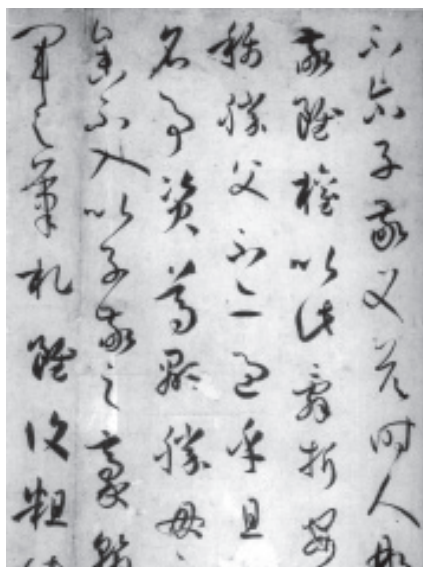 不尔子敬又答時人那
敬雖權以此辭折安
稱勝父不亦過乎且
名事資尊顯勝母
參不入以子敬之豪翰
軍之筆札雖復粗